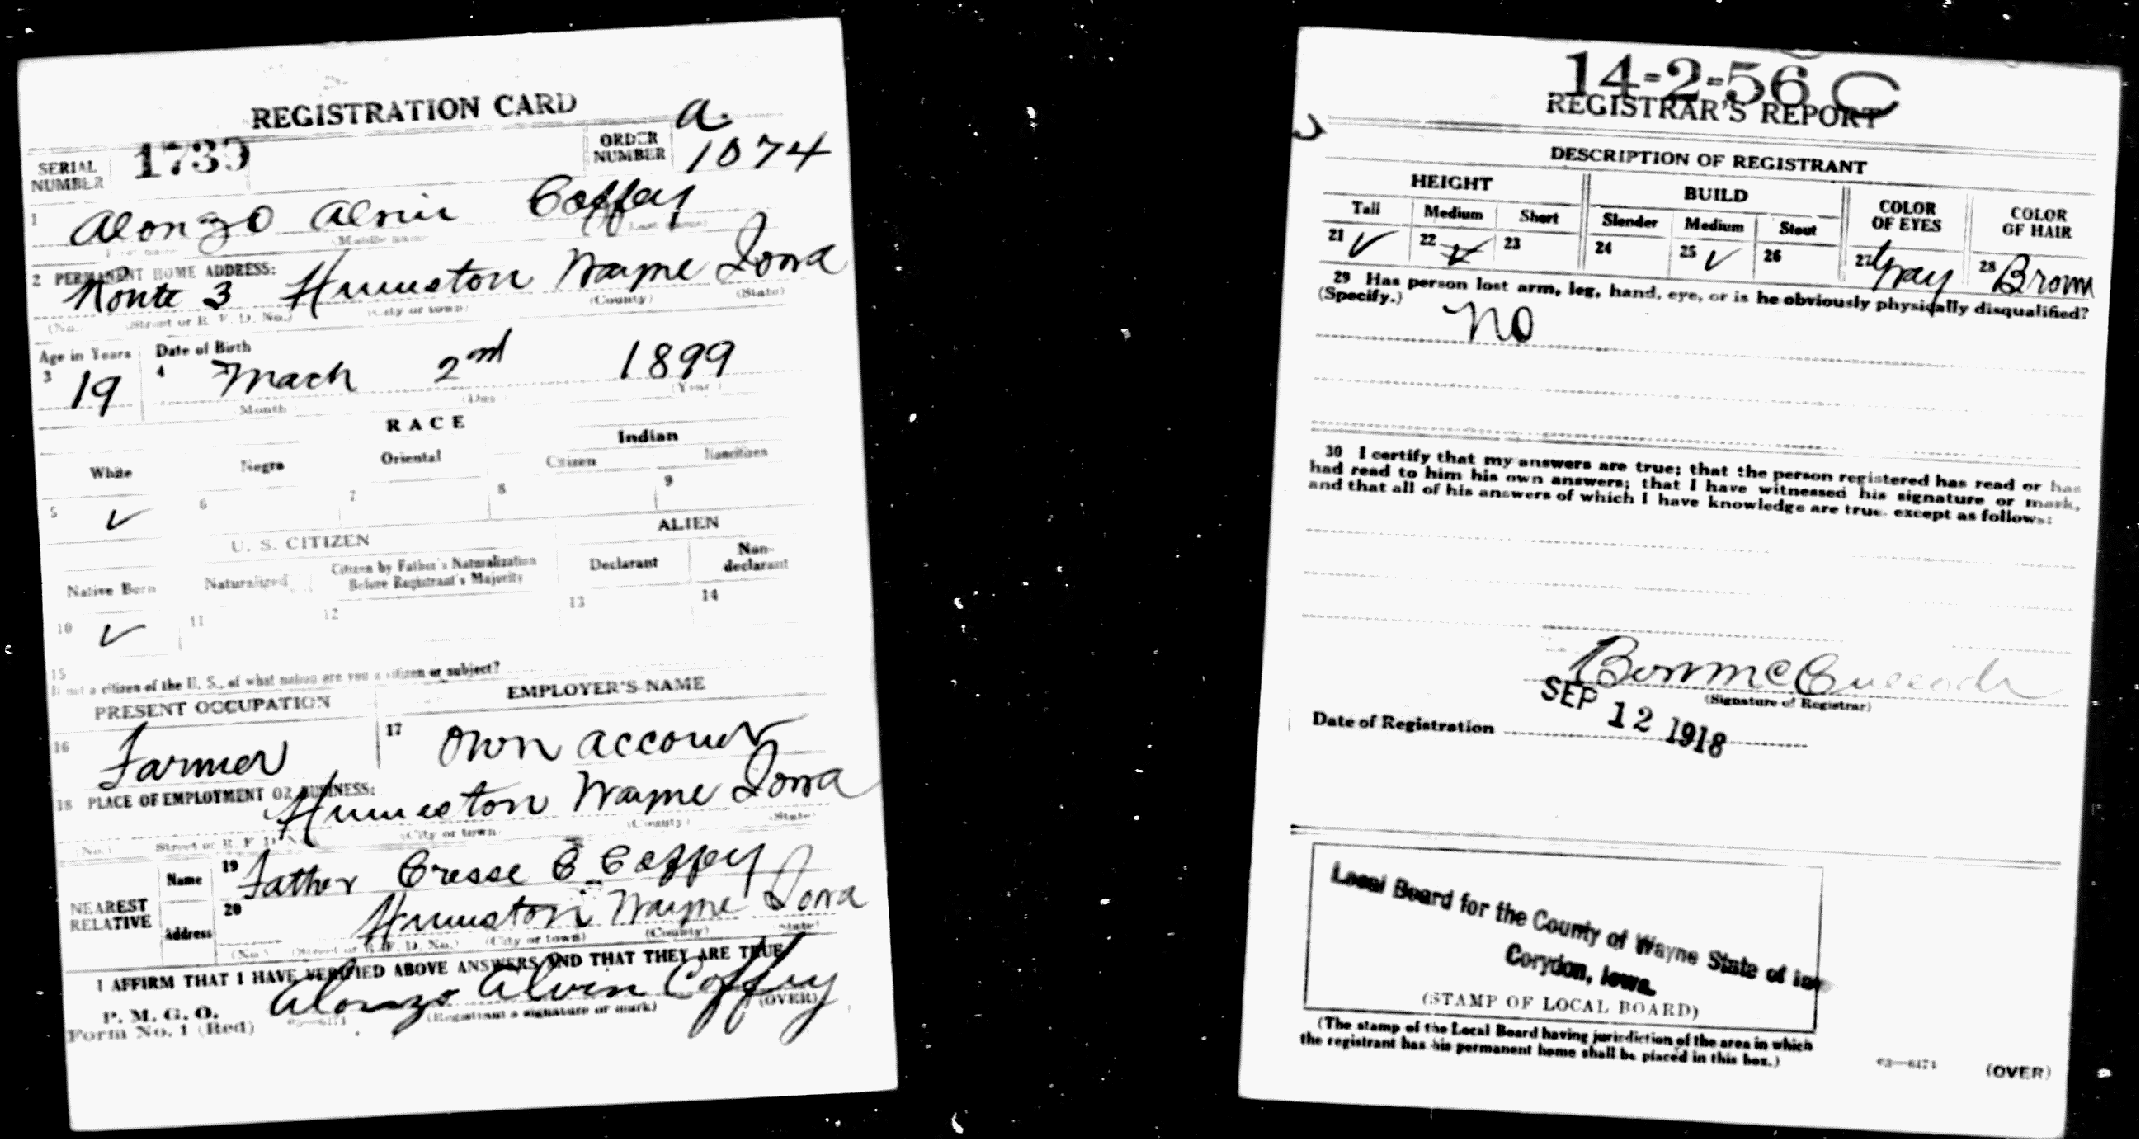 REGISTRATION CARD
SERIAL NUMBER 1739 ORDER NUMBER a. 1074
1 Alonzo Alvin Coffey
(Middle name) (Last name)
2 PERMANENT HOME ADDRESS:
Route 3 Humeston Wayne Iowa
(No.) (Street or R. F. D. No.) (City or town) (County) (State)
Age in Years Date of Birth
3 19 4 Mach 2nd 1899
(Month) (Day) (Year)
RACE
White Negro Oriental Indian
Citizen Noncitizen
5 ✓ 6 7 8 9
U. S. CITIZEN ALIEN
Native Born Naturalized Citizen by Father's Naturalization Before Registrant's Majority Declarant Non-declarant
10 ✓ 11 12 13 14
15 If not a citizen of the U. S., of what nation are you a citizen or subject?
PRESENT OCCUPATION EMPLOYER'S NAME
16 Farmer 17 Own account
18 PLACE OF EMPLOYMENT OR BUSINESS:
Humeston Wayne Iowa
(No.) (Street or R. F. D. No.) (City or town) (County) (State)
NEAREST RELATIVE
Name 19 Father Cresse C Coffey
Address 20 Humeston Wayne Iowa
(No.) (Street or R. F. D. No.) (City or town) (County) (State)
I AFFIRM THAT I HAVE VERIFIED ABOVE ANSWERS AND THAT THEY ARE TRUE
P. M. G. O.
Form No. 1 (Red) Alonzo Alvin Coffey
(Registrant's signature or mark) (OVER)
14-2-56 C
REGISTRAR'S REPORT
DESCRIPTION OF REGISTRANT
HEIGHT BUILD COLOR OF EYES COLOR OF HAIR
Tall Medium Short Slender Medium Stout
21 ✓ 22 ✓ 23 24 25 ✓ 26 27 Gray 28 Brown
29 Has person lost arm, leg, hand, eye, or is he obviously physically disqualified?
(Specify.) No
30 I certify that my answers are true; that the person registered has read or has
had read to him his own answers; that I have witnessed his signature or mark,
and that all of his answers of which I have knowledge are true, except as follows:
(Signature of Registrar)
Date of Registration SEP 12 1918
Local Board for the County of Wayne State of Iow
Corydon, Iowa.
(STAMP OF LOCAL BOARD)
(The stamp of the Local Board having jurisdiction of the area in which
the registrant has his permanent home shall be placed in this box.)
63—6171 (OVER)